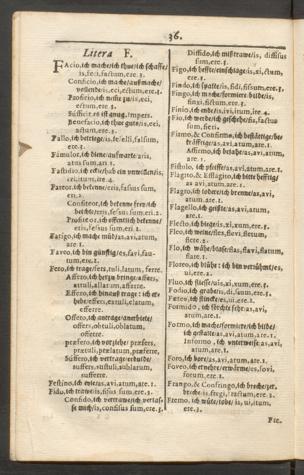 36.
Litera F.
FAcio, ich mache / ich thue / ich schaffe /
is, feci, factum, ere. 3.
Conficio, ich mache / außmache /
vollende / is, eci, ectum, ere. 3.
Proficio, ich nehme zu / is, eci,
ectum, ere. 3.
Sufficit, es ist gnug. impers.
Benefacio, ich thue guts / is, eci,
actum, ere. 3.
Fallo, ich betriege / is, fefelli, falsum,
ere. 3.
Famulor, ich diene / auffwarte / aris,
atus sum, ari. 1.
Fastidio, ich
ivi, itum, ire. 4.
Fateor, ich bekenne / eris, fassus sum,
eri. 2.
Confiteor, ich bekenne frey / ich
beichte / eris, fessus sum, eri. 2.
Profiteor, ich offentlich bekenne /
eris, fessus sum, eri. 2.
Fatigo, ich mache müd / as, avi, atum,
are. 1.
Faveo, ich bin günstig / es, favi, fau-
tum, ere. 2.
Fero, ich trage / fers, tuli, latum, ferre.
Affero, ich herzu bringe / affers,
attuli, allatum, afferre.
Effero, ich hinauß trage: ich er-
hebe / effers, extuli, elatum,
efferre.
Offero, ich antrage / anerbiete /
offers, obtuli, oblatum,
offerre.
præfero, ich vorziehe / præfers,
prætuli, prælatum, præferre.
Suffero, ich vertrage / erdulde /
suffers, sustuli, sublatum,
sufferre.
Festino, ich eyle / as, avi, atum, are. 1.
Fido, ich traw / is, fisus sum, ere. 3.
Confido, ich vertrawe / ich verlas-
se mich / is, confisus sum, ere. 3.
Diffido, ich mißtrawe / is, diffisus
sum, ere. 3.
Figo, ich heffte / einschlage / is, xi, ctum,
ere. 3.
Findo, ich spalte / is, fidi, fissum, ere. 3.
Fingo, ich mache / formiere / bilde / is,
finxi, fictum, ere. 3.
Finio, ich ende / is, ivi, itum, ire. 4.
Fio, ich werde / ich geschehe / is, factus
sum, fieri.
Firmo & Confirmo, ich bestättige / be-
kräfftige / as, avi, atum, are. 1.
Affirmo, ich bejahe / as, avi, atum,
are. 1.
Fistulo, ich pfeiffe / as, avi, atum, are. 1.
Flagito, & Efflagito, ich bitte hefftig /
as, avi, atum, are. 1.
Flagro, ich lodere / ich brenne / as, avi,
atum, are. 1.
Flagello, ich geißle / as, avi, atum,
are. 1.
Flecto, ich biege / is, xi, xum, ere. 3.
Fleo, ich weine / fles, flevi, fletum,
flere. 2.
Flo, ich wähe / blase / flas, flavi, flatum,
flare. 1.
Floreo, ich blühe: ich bin verühmt / es,
ui, ere. 2.
Fluo, ich fliesse / uis, xi, xum, ere. 3.
Fodio, ich grabe / is, di, ssum, ere. 3.
Fœteo, ich stincke / es, ui, ere. 2.
Formido, ich förchte sehr / as, avi,
atum, are. 1.
Formo, ich mache / formiere / ich bilde /
ich gestalte / as, avi, atum, are. 1.
Informo, ich unterweise / as, avi,
atum, are. 1.
Foro, ich bore / as, avi, atum, are. 1.
Foveo, ich ernehre / erwärme / es, fovi,
fotum, ere. 2.
Frango, & Confringo, ich breche / zer-
breche / is, fregi, fractum, ere. 3.
Fremo, ich wüte / tobe / is, ui, itum,
ere. 3.